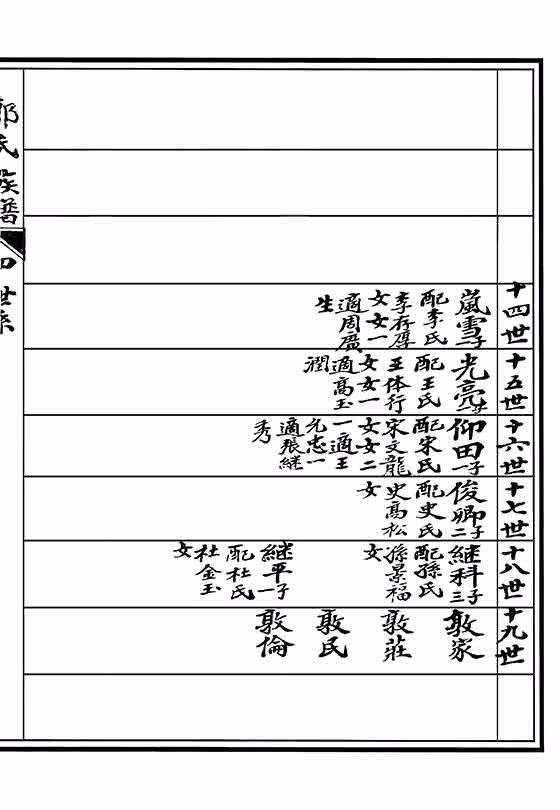 十四世
嵐雪子
配李氏
李存厚
女女一
適周廣
生
十五世
光亮
配王氏
王体行
女女一
適高玉
潤
十六世
仰田子一
配宋氏
宋文龍
女女二
一適王
允忠一
適張継
秀
十七世
俊卿子二
配史氏
史高松
女
十八世
継科子三
配孫氏
孫景福
女
継平子一
配杜氏
杜金玉
女
十九世
敦家
敦莊
敦民
敦倫
郭氏族譜
世系